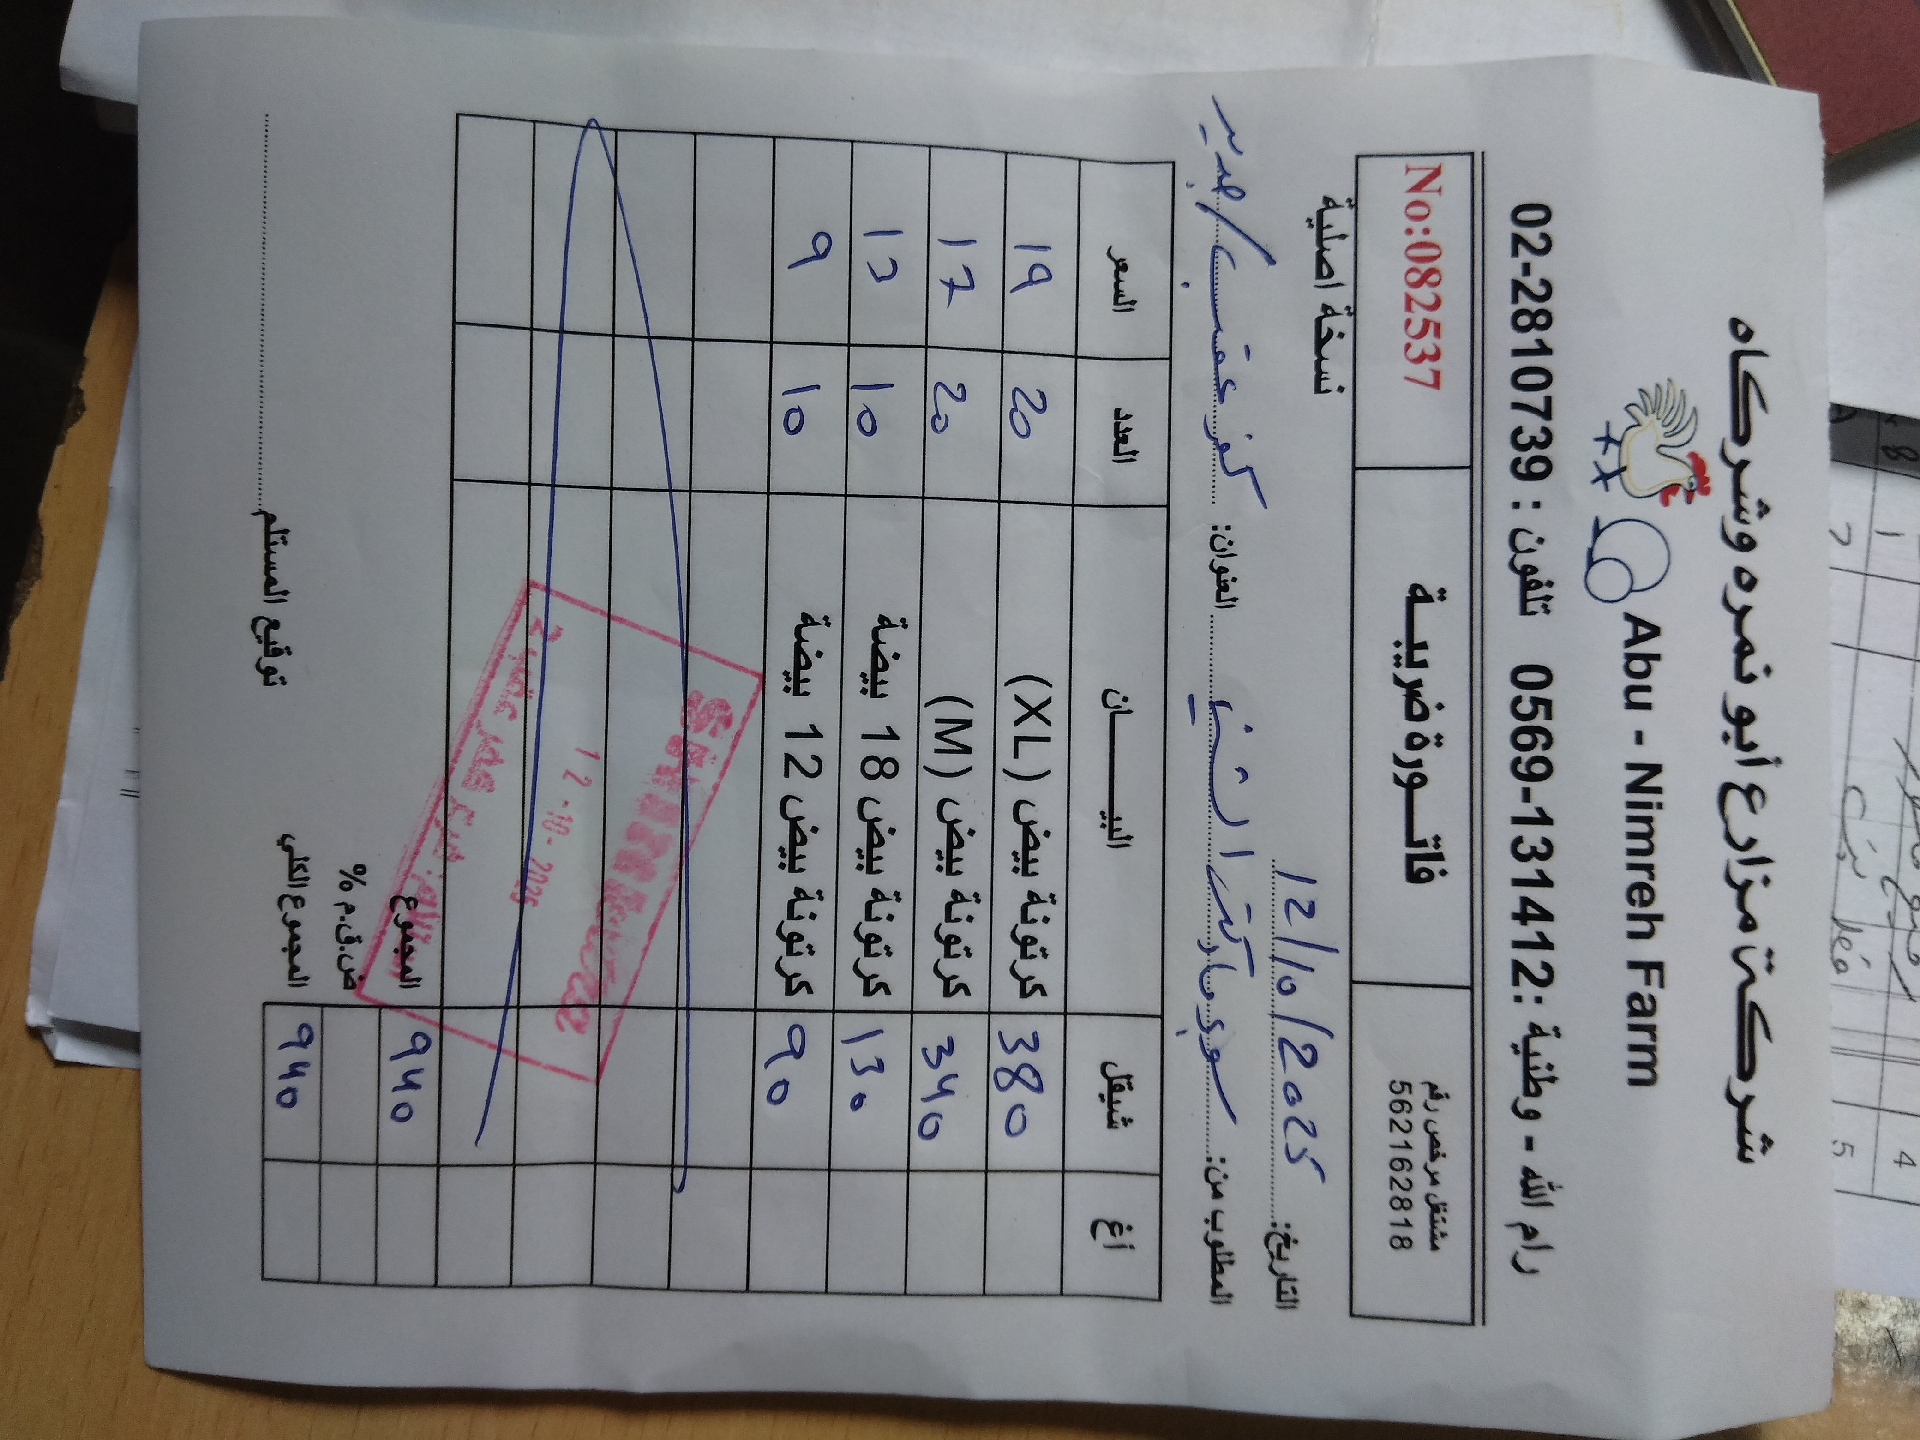 شركة مزارع أبو نمره وشركاه
Abu - Nimreh Farm
رام الله - وطنية : 0569-131412 تلفون : 02-2810739
مشتغل مرخص رقم
562162818
فاتورة ضريبية
No:082537
نسخة اصلية
التاريخ: 12/10/2025
المطلوب من: سوبر ماركت العنوان: كفر عقب /
أغ شيقل البيان العدد السعر
380 كرتونة بيض (XL) 20 19
340 كرتونة بيض (M) 20 17
130 كرتونة بيض 18 بيضة 10 13
90 كرتونة بيض 12 بيضة 10 9
12-10-2025
المجموع 940
ض.ق.م %
المجموع الكلي 940
توقيع المستلم